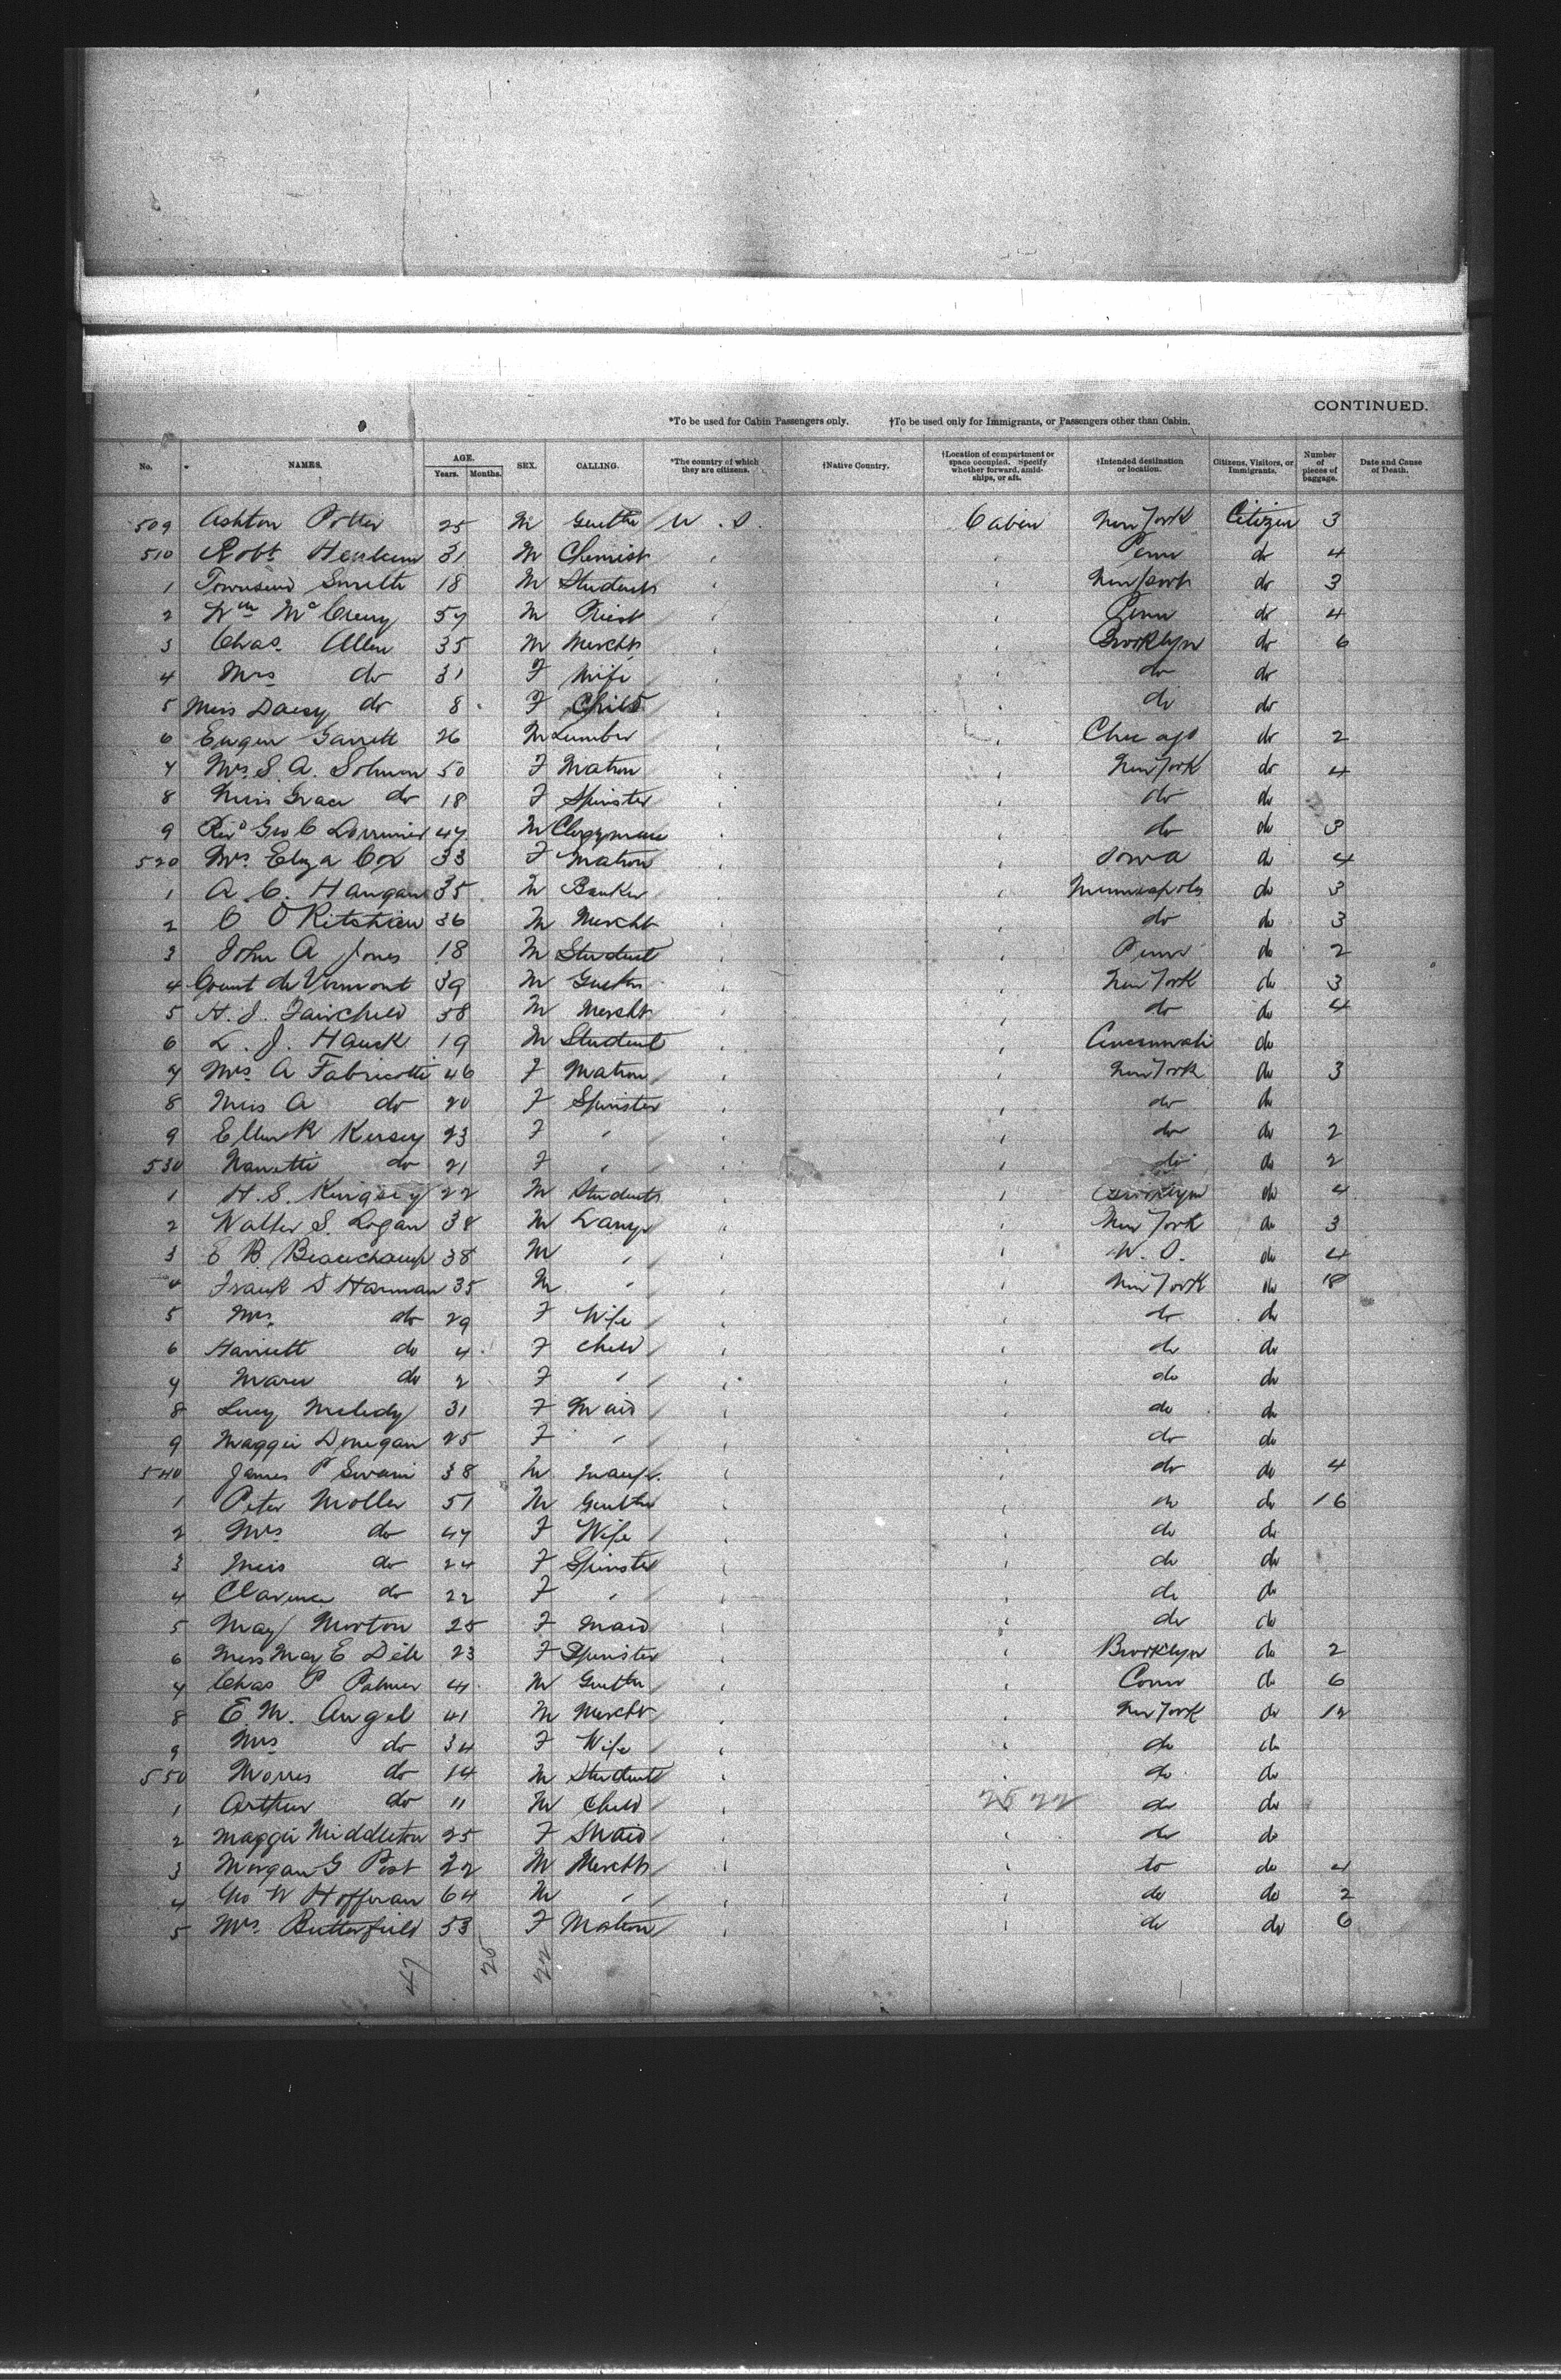 CONTINUED.
*To be used for Cabin Passengers only. †To be used only for Immigrants, or Passengers other than Cabin.
No. NAMES. AGE. Years. Months. SEX. CALLING. *The country of which they are citizens. †Native Country. †Location of compartment or space occupied. Specify whether forward, amidships, or aft. †Intended destination or location. Citizens, Visitors, or Immigrants. Number of pieces of baggage. Date and Cause of Death.
509 Ashton Potter 25 M U.S. Cabin New York Citizen 3
510 Robt 31 M Chemist " Penn do 4
1 Townsend Smith 18 M Student " New York do 3
2 Wm McCreery 57 M Priest " Penn do 4
3 Chas. Allen 35 M Mercht " Brooklyn do 6
4 Mrs do 31 F Wife " do do
5 Miss Daisy do 8 F Child " do do
6 Eugene Garrett 26 M Lumber " Chicago do 2
7 Mrs. S. A. 50 F Matron " New York do 4
8 Miss Grace do 18 F Spinster " do do
9 Revd Geo C Lorrimer 47 M Clergyman " do do 3
520 Mrs. Eliza Cox 33 F Matron " Iowa do 4
1 A. C. Haugan 35 M Banker " Minneapolis do 3
2 C O 36 M Mercht " do do 3
3 John A Jones 18 M Student " Penn do 2
4 Count de Vermont 39 M " New York do 3
5 H. J. Fairchild 58 M Mercht " do do 4
6 L. J. Hauck 19 M Student " Cincinnati do
7 Mrs A Fabricotti 46 F Matron " New York do 3
8 Miss A do 20 F Spinster " do do
9 Ellen R Kersey 23 F " " do do 2
530 Nanette do 21 F " " do do 2
1 H. S. Kingsley 22 M Student " Brooklyn do 4
2 Walter S. Logan 38 M Lawyr " New York do 3
3 E B Beauchamp 38 M " " do 4
4 Frank S Harman 35 M " " New York do 18
5 Mrs. do 29 F Wife " do do
6 Harriett do 4 F Child " do do
7 Marie do 2 F " " do do
8 Lucy Melody 31 F Maid " do do
9 Maggie Donegan 25 F " " do do
540 James P Swain 38 M Manf. " do do 4
1 Peter Moller 51 M " do do 16
2 Mrs do 47 F Wife " do do
3 Miss do 24 F Spinster " do do
4 Clarence do 22 F " " do do
5 May Morton 25 F Maid " do do
6 Miss May E 23 F Spinster " Brooklyn do 2
7 Chas P Palmer 41 M " Conn do 6
8 E. M. Angel 41 M Mercht " New York do 12
9 Mrs do 34 F Wife " do do
550 Morris do 14 M Student " do do
1 Arthur do 11 M Child " 25 22 do do
2 Maggie Middleton 25 F Maid " do do
3 Morgan G Post 22 M Mercht " do do 4
4 Geo W Hoffman 64 M " " do do 2
5 Mrs. Butterfield 53 F Matron " do do 6
47 25 22